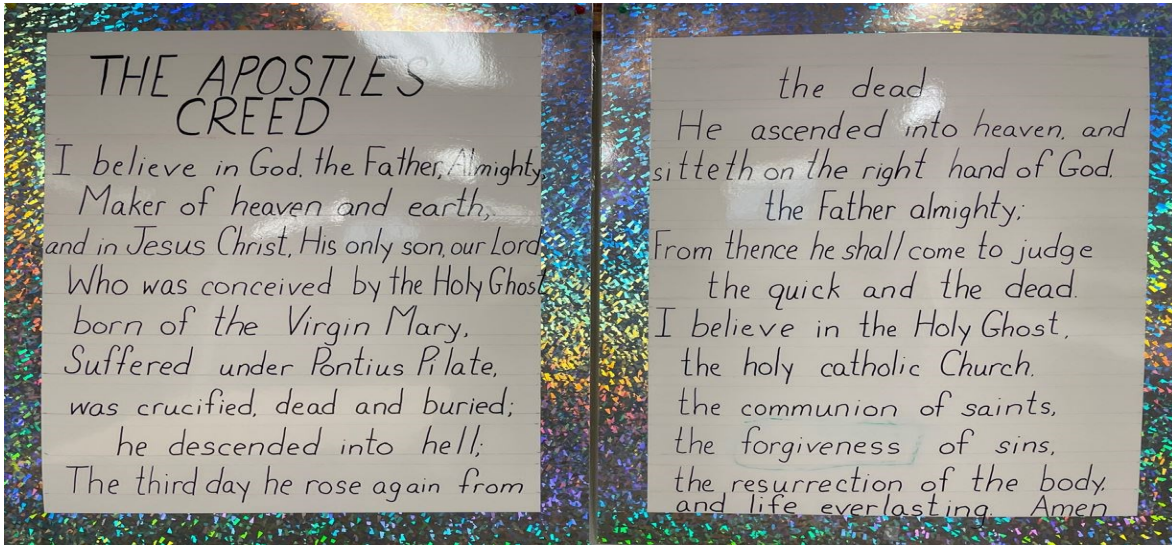 THE APOSTLES'
CREED
I believe in God, the Father, Almighty,
Maker of heaven and earth,
and in Jesus Christ, His only son, our Lord
Who was conceived by the Holy Ghost
born of the Virgin Mary,
Suffered under Pontius Pilate,
was crucified, dead and buried;
he descended into hell;
The third day he rose again from
the dead
He ascended into heaven, and
sitteth on the right hand of God,
the Father almighty;
From thence he shall come to judge
the quick and the dead.
I believe in the Holy Ghost,
the holy catholic Church,
the communion of saints,
the forgiveness of sins,
the resurrection of the body,
and life everlasting. Amen